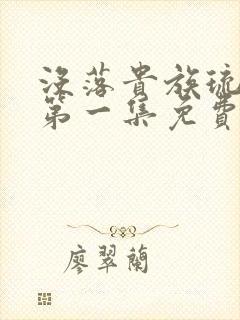 沒落貴族琉
第一集免費
廖翠蘭